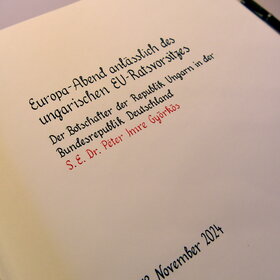 Europa-Abend anlässlich des
ungarischen EU-Ratsvorsitzes
Der Botschafter der Republik Ungarn in der
Bundesrepublik Deutschland
S. E. Dr. Peter Imre Györkös
November 2024